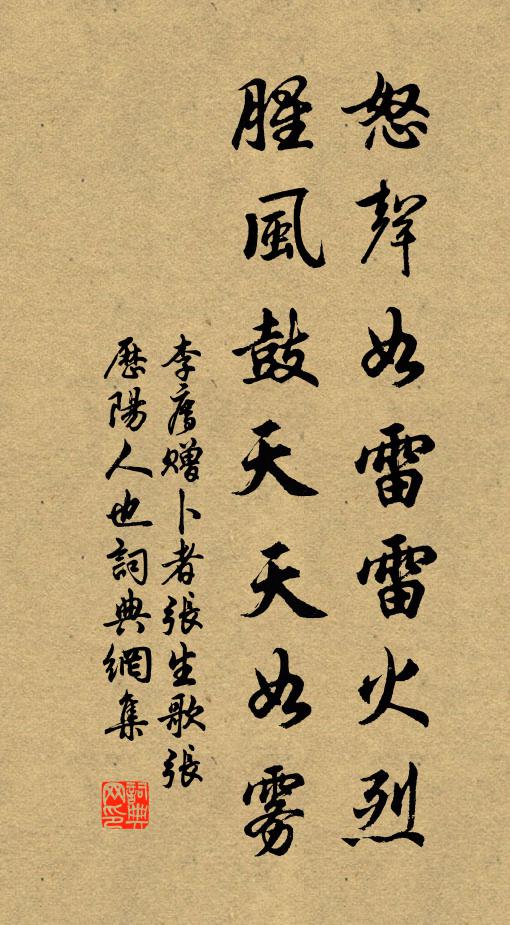 怒聲如雷雷火烈
腥風鼓天天如雾
李廌贈卜者張生歌張
歷陽人也詞典網集
詞典
网印